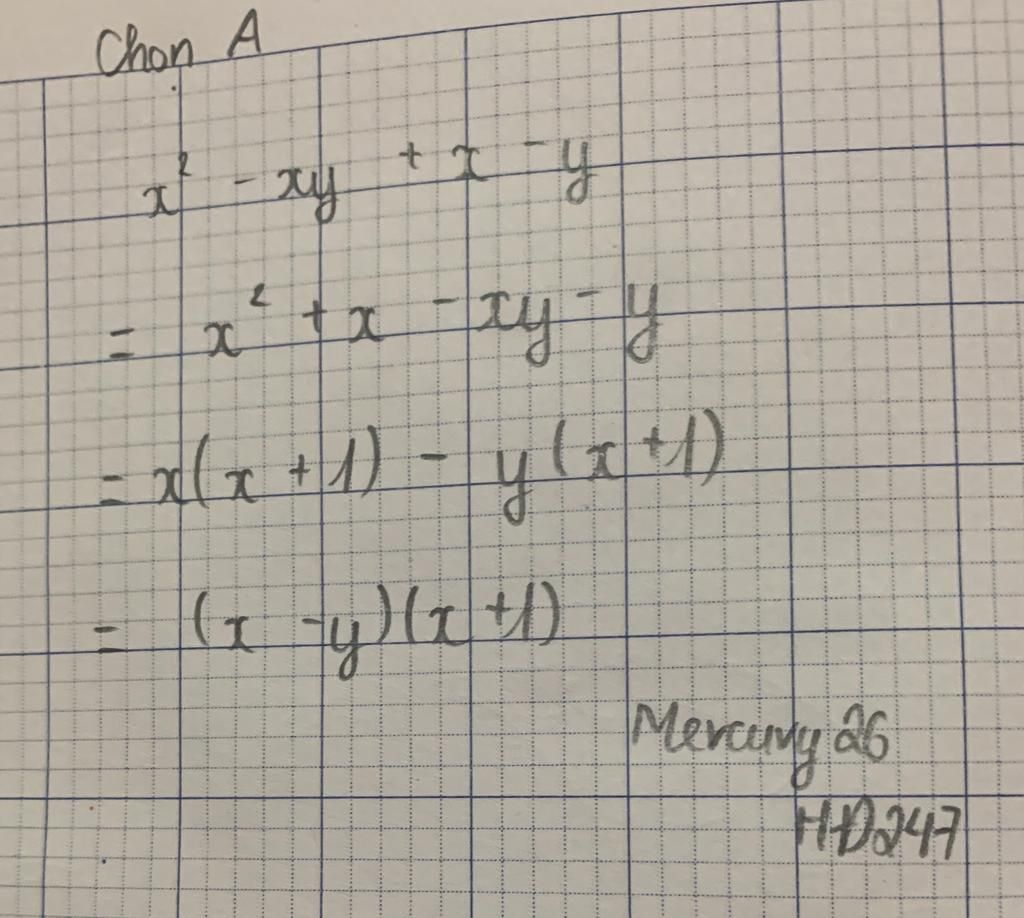 Chọn A
x² - xy + x - y
= x² + x - xy - y
= x(x + 1) - y(x + 1)
= (x - y)(x + 1)
Mercury 26
HĐ247